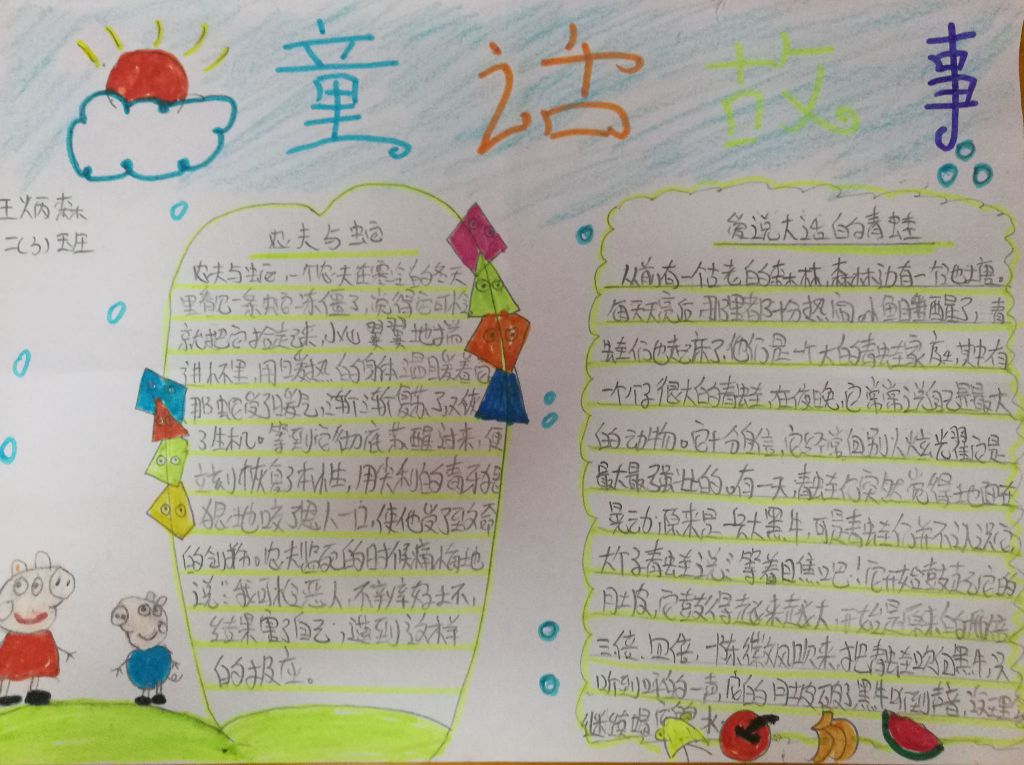 童话故事
王炳森
二(3)班
农夫与蛇
农夫与蛇,一个农夫在寒冷的冬天
里看见一条蛇冻僵了,觉得它可怜
就把它拾起来,小心翼翼地揣
进怀里,用暖热的身体温暖着它
那蛇受了暖气,渐渐复苏了,又恢
了生机。等到它彻底苏醒过来,便
立刻恢复了本性,用尖利的毒牙狠
狠地咬了恩人一口,使他受了致命
的创伤。农夫临死的时候痛悔地
说:"我可怜恶人,不辨好坏,
结果害了自己,遭到这样
的报应。
爱说大话的青蛙
从前有一个古老的森林,森林边有一个池塘。
每天天亮后,那里都十分热闹。小鱼睡醒了,青
蛙们也起床了,他们是一个大的青蛙家庭,其中有
一个个子很大的青蛙,在夜晚,它常常说自己是最大
的动物。它十分自信,它经常向别人炫耀它是
最大最强壮的。有一天,青蛙们突然觉得地面在
晃动,原来是一头大黑牛,可是青蛙们并不认识它
大个子青蛙说:等着瞧吧!它开始鼓起它的
肚皮,它鼓得越来越大,开始是原来的两倍
三倍、四倍,一阵微风吹来,把青蛙吹向黑牛,只
听到呯的一声,它的肚皮破了,黑牛听到声音,没理
继续喝 水